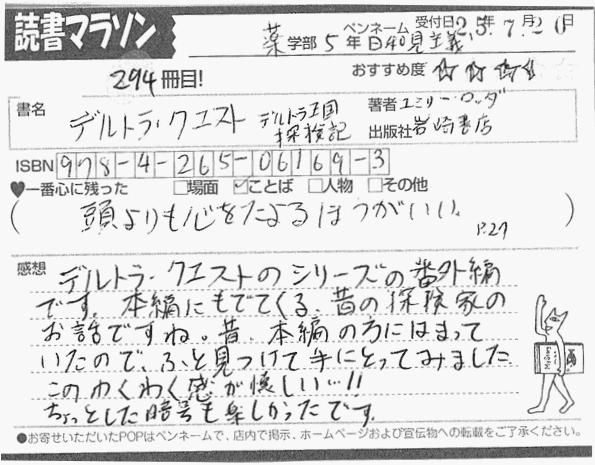 読書マラソン
薬学部 5年 ペンネーム 日和見主義 受付日25年7月20日
294冊目!
おすすめ度 ☆☆☆☆
書名 デルトラ・クエスト デルトラ王国探検記
著者 エミリー・ロッダ
出版社 岩崎書店
ISBN 978-4-265-06169-3
♥一番心に残った □場面 ☑ことば □人物 □その他
(頭よりも心をたよるほうがいい。 P.27)
感想 デルトラ・クエストのシリーズの番外編
です。本編にもでてくる、昔の探検家の
お話ですね。昔、本編の方にはまって
いたので、ふと見つけて手にとってみました
このわくわく感が懐しい…!!
ちょっとした暗号も楽しかったです。
●お寄せいただいたPOPはペンネームで、店内で掲示、ホームページおよび宣伝物への転載をご了承ください。